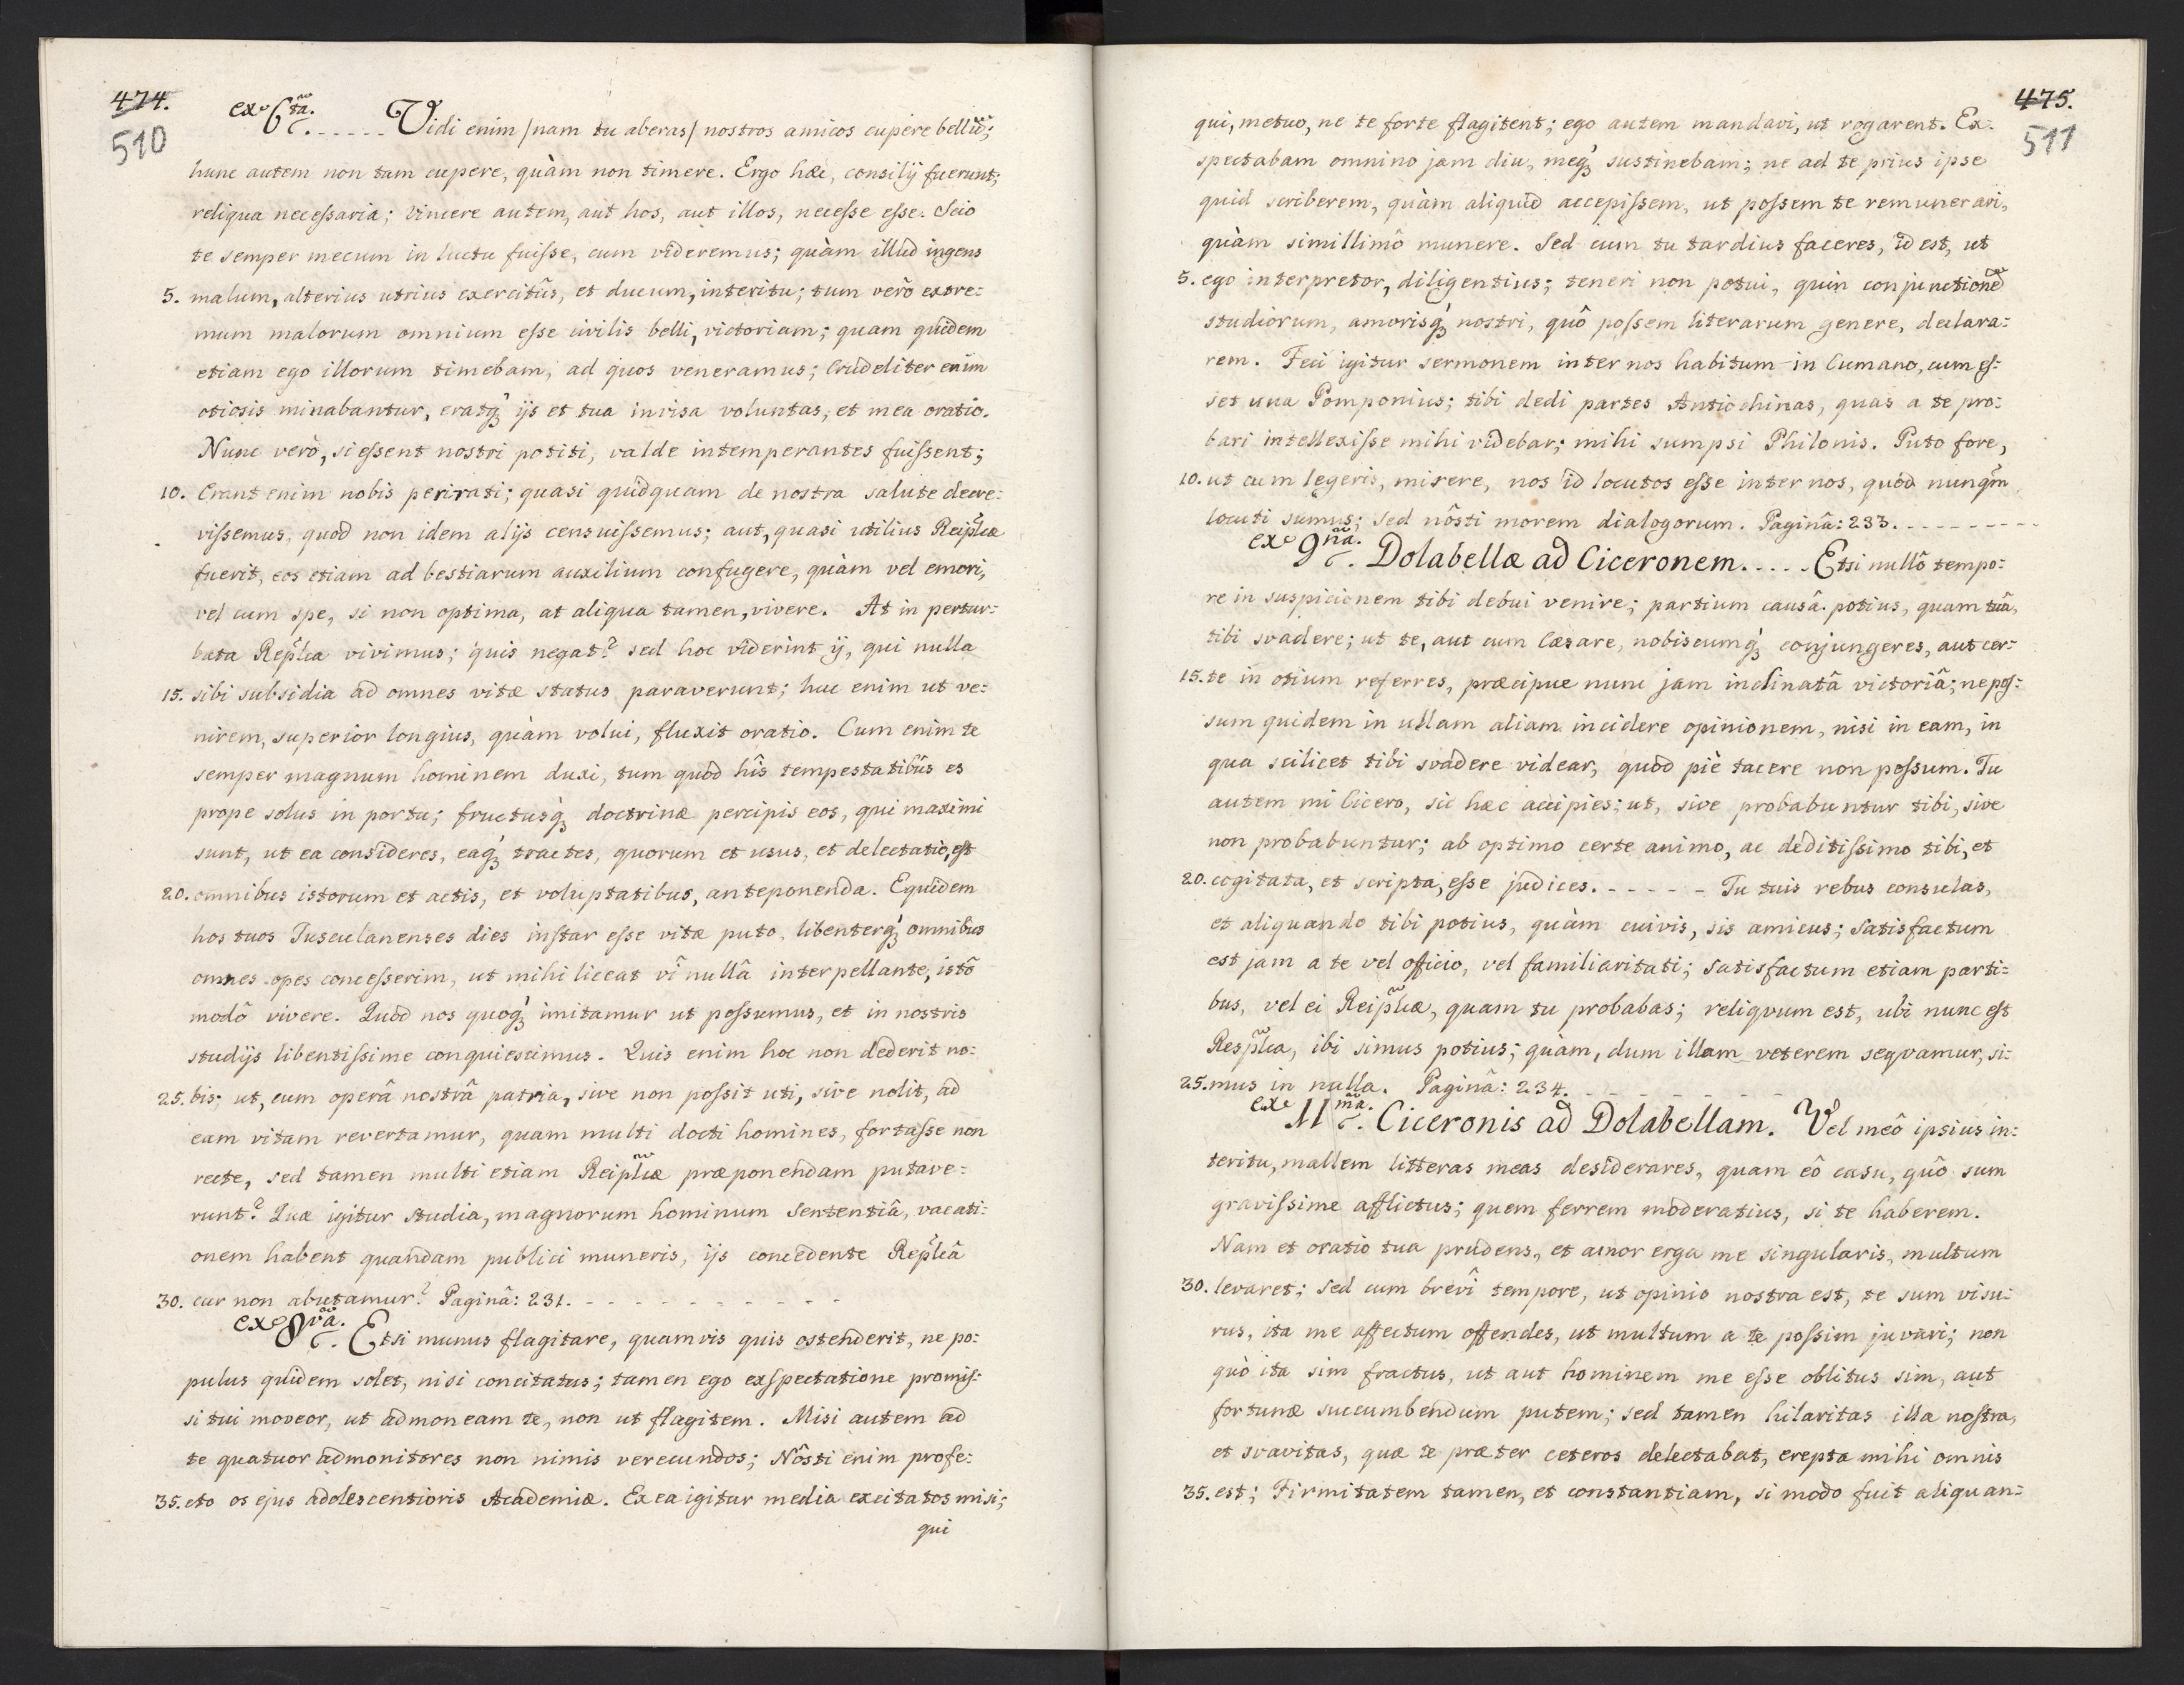 474.
510
ex 6ta. . . . . . Vidi enim /nam tu aberas/ nostros amicos cupere bellũ;
hunc autem non tam cupere, quàm non timere. Ergo hæc, consilij fuerunt;
reliqua necessaria; Vincere autem, aut hos, aut illos, necesse esse. Scio
te semper mecum in luctu fuisse, cum videremus; quàm illud ingens
5. malum, alterius utrius exercitûs, et ducum, interitu; tum verò extre:
mum malorum omnium esse civilis belli, victoriam; quam quidem
etiam ego illorum timebam, ad quos veneramus; Crudeliter enim
otiosis minabantur, eratq́3 ijs et tua invisa voluntas, et mea oratio.
Nunc verò, si essent nostri potiti, valde intemperantes fuissent;
10. Erant enim nobis perirati; quasi quidquam de nostra salute decre:
vissemus, quod non idem alijs censuissemus; aut, quasi utilius Reiplicæ
fuerit, eos etiam ad bestiarum auxilium confugere, quàm vel emori,
vel cum spe, si non optima, at aliqua tamen, vivere. At in pertur:
bata Replica vivimus; quis negat? sed hoc viderint ij, qui nulla
15. sibi subsidia ad omnes vitæ status paraverunt; huc enim ut ve:
nirem, superior longius, quàm volui, fluxit oratio. Cum enim te
semper magnum hominem duxi, tum quòd hîs tempestatibûs es
prope solus in portu; fructusq́3 doctrinæ percipis eos, qui maximi
sunt, ut ea consideres, eaq́3 tractes, quorum et usus, et delectatio, est
20. omnibus istorum et actis, et voluptatibus, anteponenda. Equidem
hos tuos Tusculanenses dies instar esse vitæ puto, libenterq́3 omnibus
omnes opes concesserim, ut mihi liceat vî nullâ interpellante, istô
modô vivere. Quòd nos quoq́3 imitamur ut possumus, et in nostris
studijs libentissime conquiescimus. Quis enim hoc non dederit no:
25. bis; ut, cum operâ nostrâ patria, sive non possit uti, sive nolit, ad
eam vitam revertamur, quam multi docti homines, fortasse non
recte, sed tamen multi etiam Reiplicæ præponendam putave:
runt? Quæ igitur studia, magnorum hominum Sententiâ, vacati:
onem habent quandam publici muneris, ijs concedente Replicâ
30. cur non abutamur? Paginâ: 231. - - - - - - - - - - -
ex 8va. Etsi munus flagitare, quamvis quis ostenderit, ne po:
pulus quidem solet, nisi concitatus; tamen ego exspectatione promis:
si tui moveor, ut admoneam te, non ut flagitem. Misi autem ad
te quatuor admonitores non nimis verecundos; Nôsti enim profe:
35. cto os ejus adolescentioris Academiæ. Ex ea igitur media excitatos misi;
qui
475.
511
qui, metuo, ne te forte flagitent; ego autem mandavi, ut rogarent. Ex.
spectabam omnino jam diu, meq́3 sustinebam; ne ad te prius ipse
quid scriberem, quàm aliquid accepissem, ut possem te remunerari,
quàm simillimô munere. Sed cum tu tardius faceres, id est, ut
5. ego interpretor, diligentius; teneri non potui, quin conjunctionẽ
studiorum, amorisq́3 nostri, quô possem literarum genere, declara:
rem. Feci igitur sermonem inter nos habitum in Cumano, cum es:
set una Pomponius; tibi dedi partes Antiochinas, quas a te pro:
bari intellexisse mihi videbar; mihi sumpsi Philonis. Puto fore,
10. ut cum legeris, mirere, nos id locutos esse inter nos, quòd nunqm̃
locuti sumus; sed nôsti morem dialogorum. Paginâ: 233. - - - - - - - - -
ex 9na. Dolabellæ ad Ciceronem. . . . . Etsi nullô tempo:
re in suspicionem tibi debui venire; partium causâ potius, quam tuâ,
tibi svadere; ut te, aut cum Cæsare, nobiscumq́3 conjungeres, aut cer:
15. te in otium referres, præcipue nunc jam inclinatâ victoriâ; ne pos:
sum quidem in ullam aliam incidere opinionem, nisi in eam, in
qua scilicet tibi svadere videar, quòd piè tacere non possum. Tu
autem mi Cicero, sic hæc accipies; ut, sive probabuntur tibi, sive
non probabuntur; ab optimo certe animo, ac deditissimo tibi, et
20. cogitata, et scripta, esse judices. - - - - - Tu tuis rebus consulas,
et aliquando tibi potius, quàm cuivis, sis amicus; Satisfactum
est jam a te vel officio, vel familiaritati; Satisfactum etiam parti:
bus, vel ei Reiplicæ, quam tu probabas; reliqvum est, ubi nunc est
Resplica, ibi simus potius; quàm, dum illam veterem seqvamur, si:
25. mus in nulla. Paginâ: 234. - - - - - -
ex 11ma. Ciceronis ad Dolabellam. Vel meô ipsius in:
teritu, mallem litteras meas desiderares, quam eô casu, quô sum
gravissime afflictus; quem ferrem moderatius, si te haberem.
Nam et oratio tua prudens, et amor erga me singularis, multum
30. levaret; sed cum brevî tempore, ut opinio nostra est, te sum visu:
rus, ita me affectum offendes, ut multum a te possim juvari; non
quò ita sim fractus, ut aut hominem me esse oblitus sim, aut
fortunæ succumbendum putem; sed tamen hilaritas illa nostra,
et svavitas, quæ te præter ceteros delectabat, erepta mihi omnis
35. est; Firmitatem tamen, et constantiam, si modo fuit aliquan: